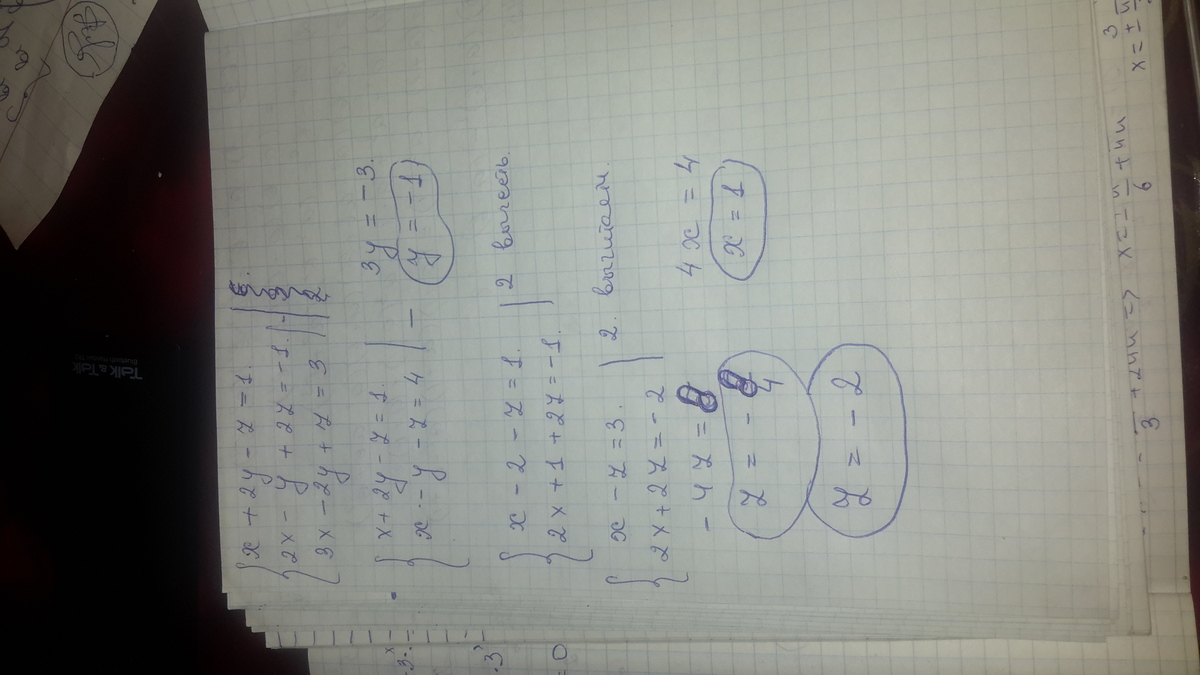 x + 2y - z = 1.
2x - y + 2z = -1. | -
3x - 2y + z = 3 | 2
x + 2y - z = 1.
x - y - z = 4 | -
3y = -3.
y = -1
x - 2 - z = 1.
2x + 1 + 2z = -1. | 2 вычесть.
x - z = 3.
2x + 2z = -2 | 2. вычитаем.
- 4z = 8
4x = 4
z = - 8/4
x = 1
z = - 2
Talk & Talk
3
=> x =
+ πn
6
x = ±
3
= 0